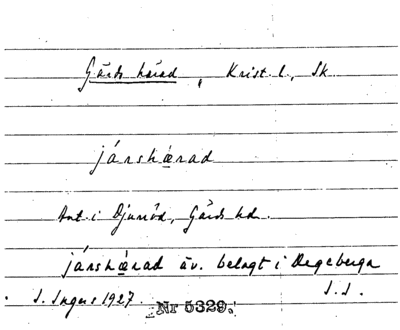 Gärds härad, Krist. l., Sk
járshærad
Ant. i Djurröd, Gärds hd.
járshærad äv. belagt i Degeberga
S. Ingers 1927. Nr 5329. S.I.